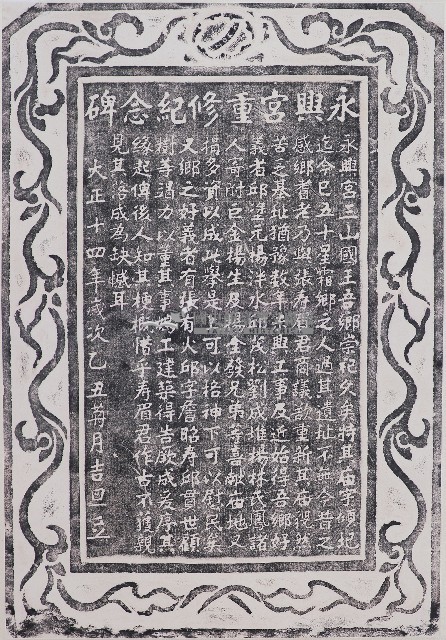 永興宮重修紀念碑
永興宮三山國王吾鄉崇祀久矣特其廟宇傾圮
迄今已五十星霜鄉之人過其遺址不無今昔之
感鄉耆老乃與張壽眉君商議欲重新其廟貌然
苦乏基址猶豫數年未興工事及近始得吾鄉好
義者邱塗元楊泮水邱茂松劉成堆楊林氏鳳諸
人寄附巨金楊生及楊金發兄弟等喜獻庙地又
捐多資以成此舉是上可以格神下可以慰民矣
又鄉之好義者有張有火邱字詹昭寿邱貫世顧
樹等遏力以董其事鳩工建築得告厥成爰序其
緣起傳後人知其梗概惜乎寿眉君作古不獲親
見其落成為缺憾耳
大正十四年歲次乙丑葭月吉旦立